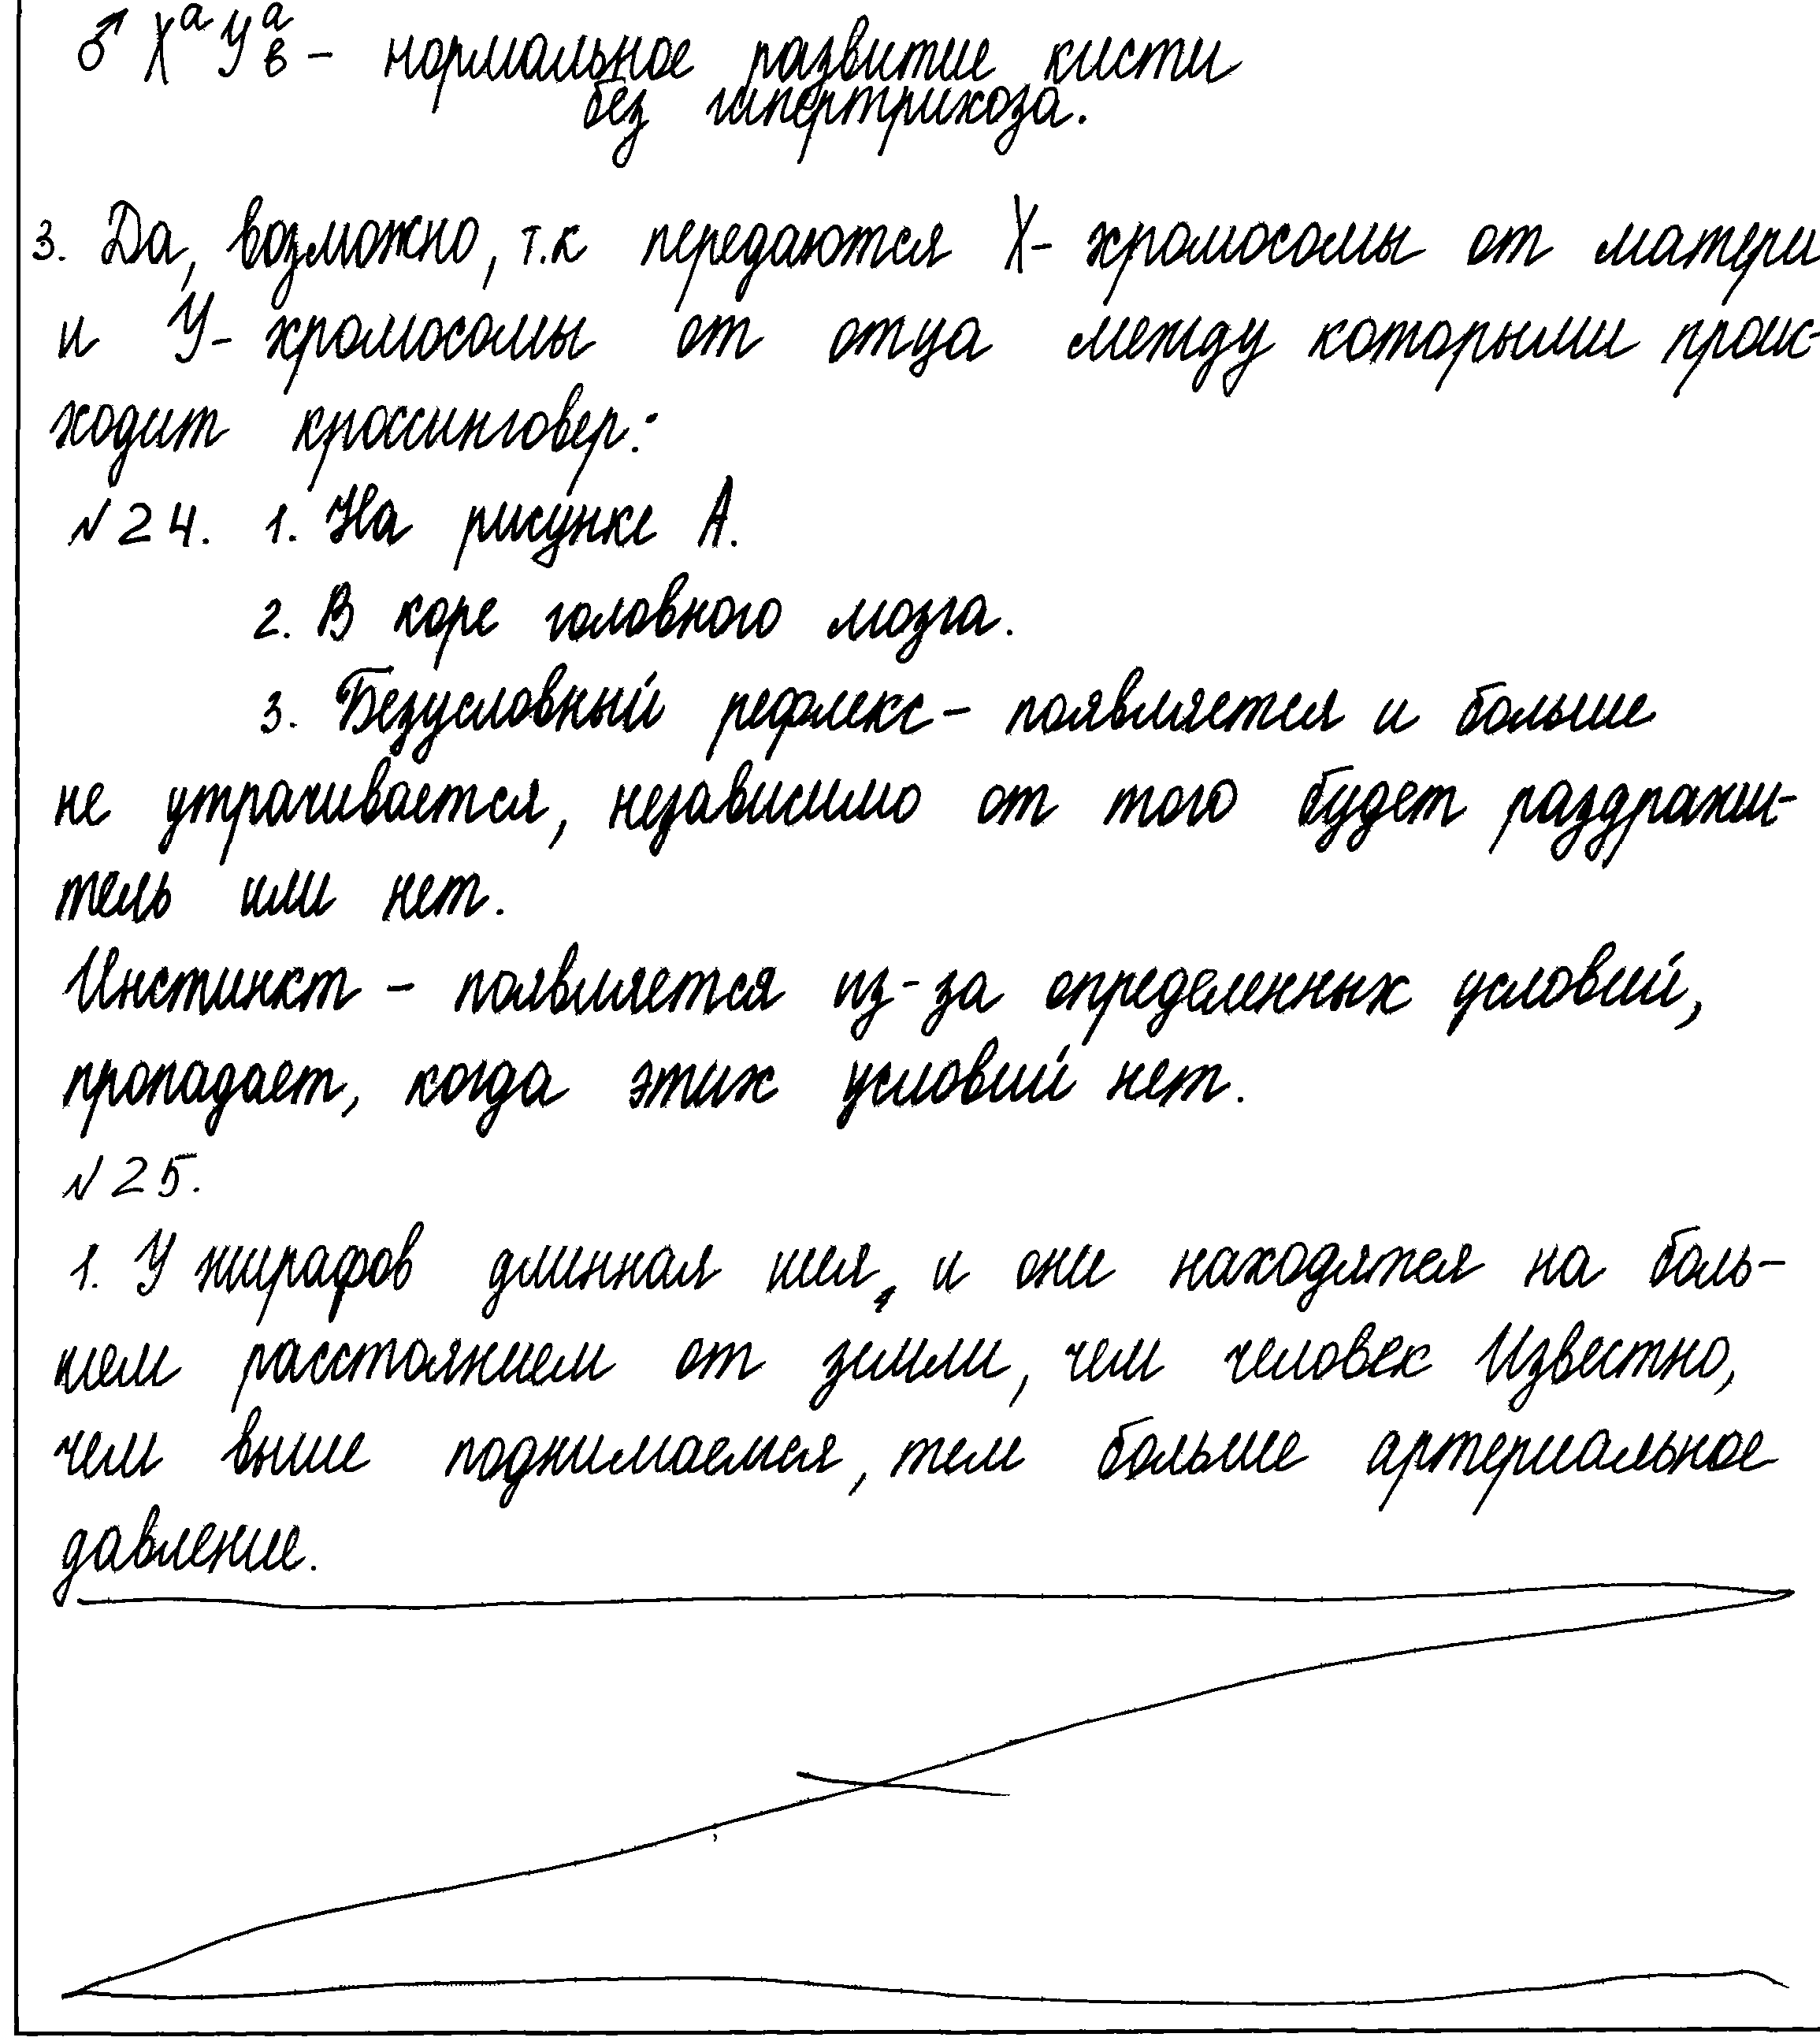 ♂ XᵃYᵃв – нормальное развитие кисти
без гипертрихоза.
3. Да, возможно, т.к передаются X- хромосомы от матери
и У- хромосомы от отца между которыми проис-
ходит кроссинговер.
№24. 1. На рисунке А.
2. В коре головного мозга.
3. Безусловный рефлекс – появляется и больше
не утрачивается, независимо от того будет раздражи-
тель или нет.
Инстинкт – появляется из-за определенных условий,
пропадает, когда этих условий нет.
№25.
1. У жирафов длинная шея, и они находятся на боль-
шем расстоянием от земли, чем человек Известно,
чем выше поднимаемся, тем больше артериальное
давление.